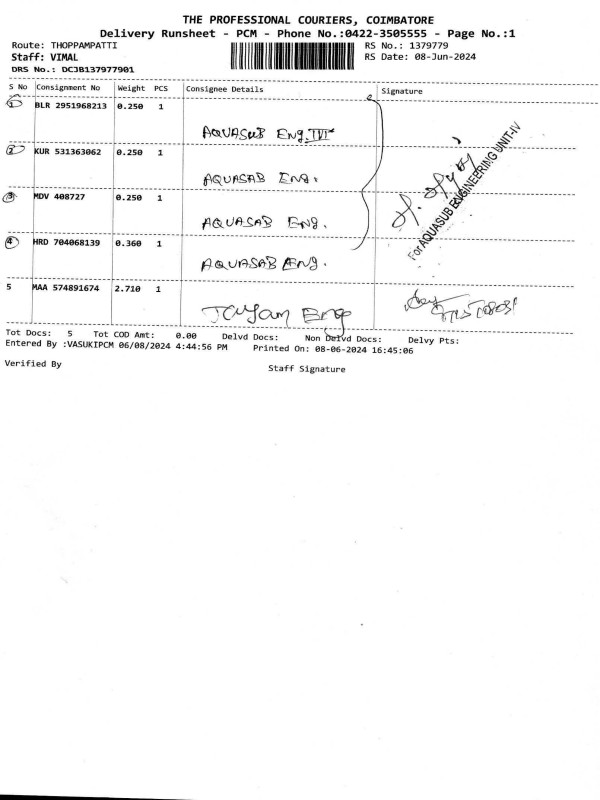 THE PROFESSIONAL COURIERS, COIMBATORE
Delivery Runsheet - PCM - Phone No.:0422-3505555 - Page No.:1
Route: THOPPAMPATTI RS No.: 1379779
Staff: VIMAL RS Date: 08-Jun-2024
DRS No.: DCJB137977901
S No Consignment No Weight PCS Consignee Details Signature
1 BLR 2951968213 0.250 1
AQUASUB Eng.
2 KUR 531363062 0.250 1
AQUASAB Eng.
3 MDV 408727 0.250 1
AQUASAB Eng.
For AQUASUB ENGINEERING UNIT-IV
4 HRD 704068139 0.360 1
AQUASAB Eng.
5 MAA 574891674 2.710 1
Eng
Tot Docs: 5 Tot COD Amt: 0.00 Delvd Docs: Non Delvd Docs: Delvy Pts:
Entered By :VASUKIPCM 06/08/2024 4:44:56 PM Printed On: 08-06-2024 16:45:06
Verified By Staff Signature